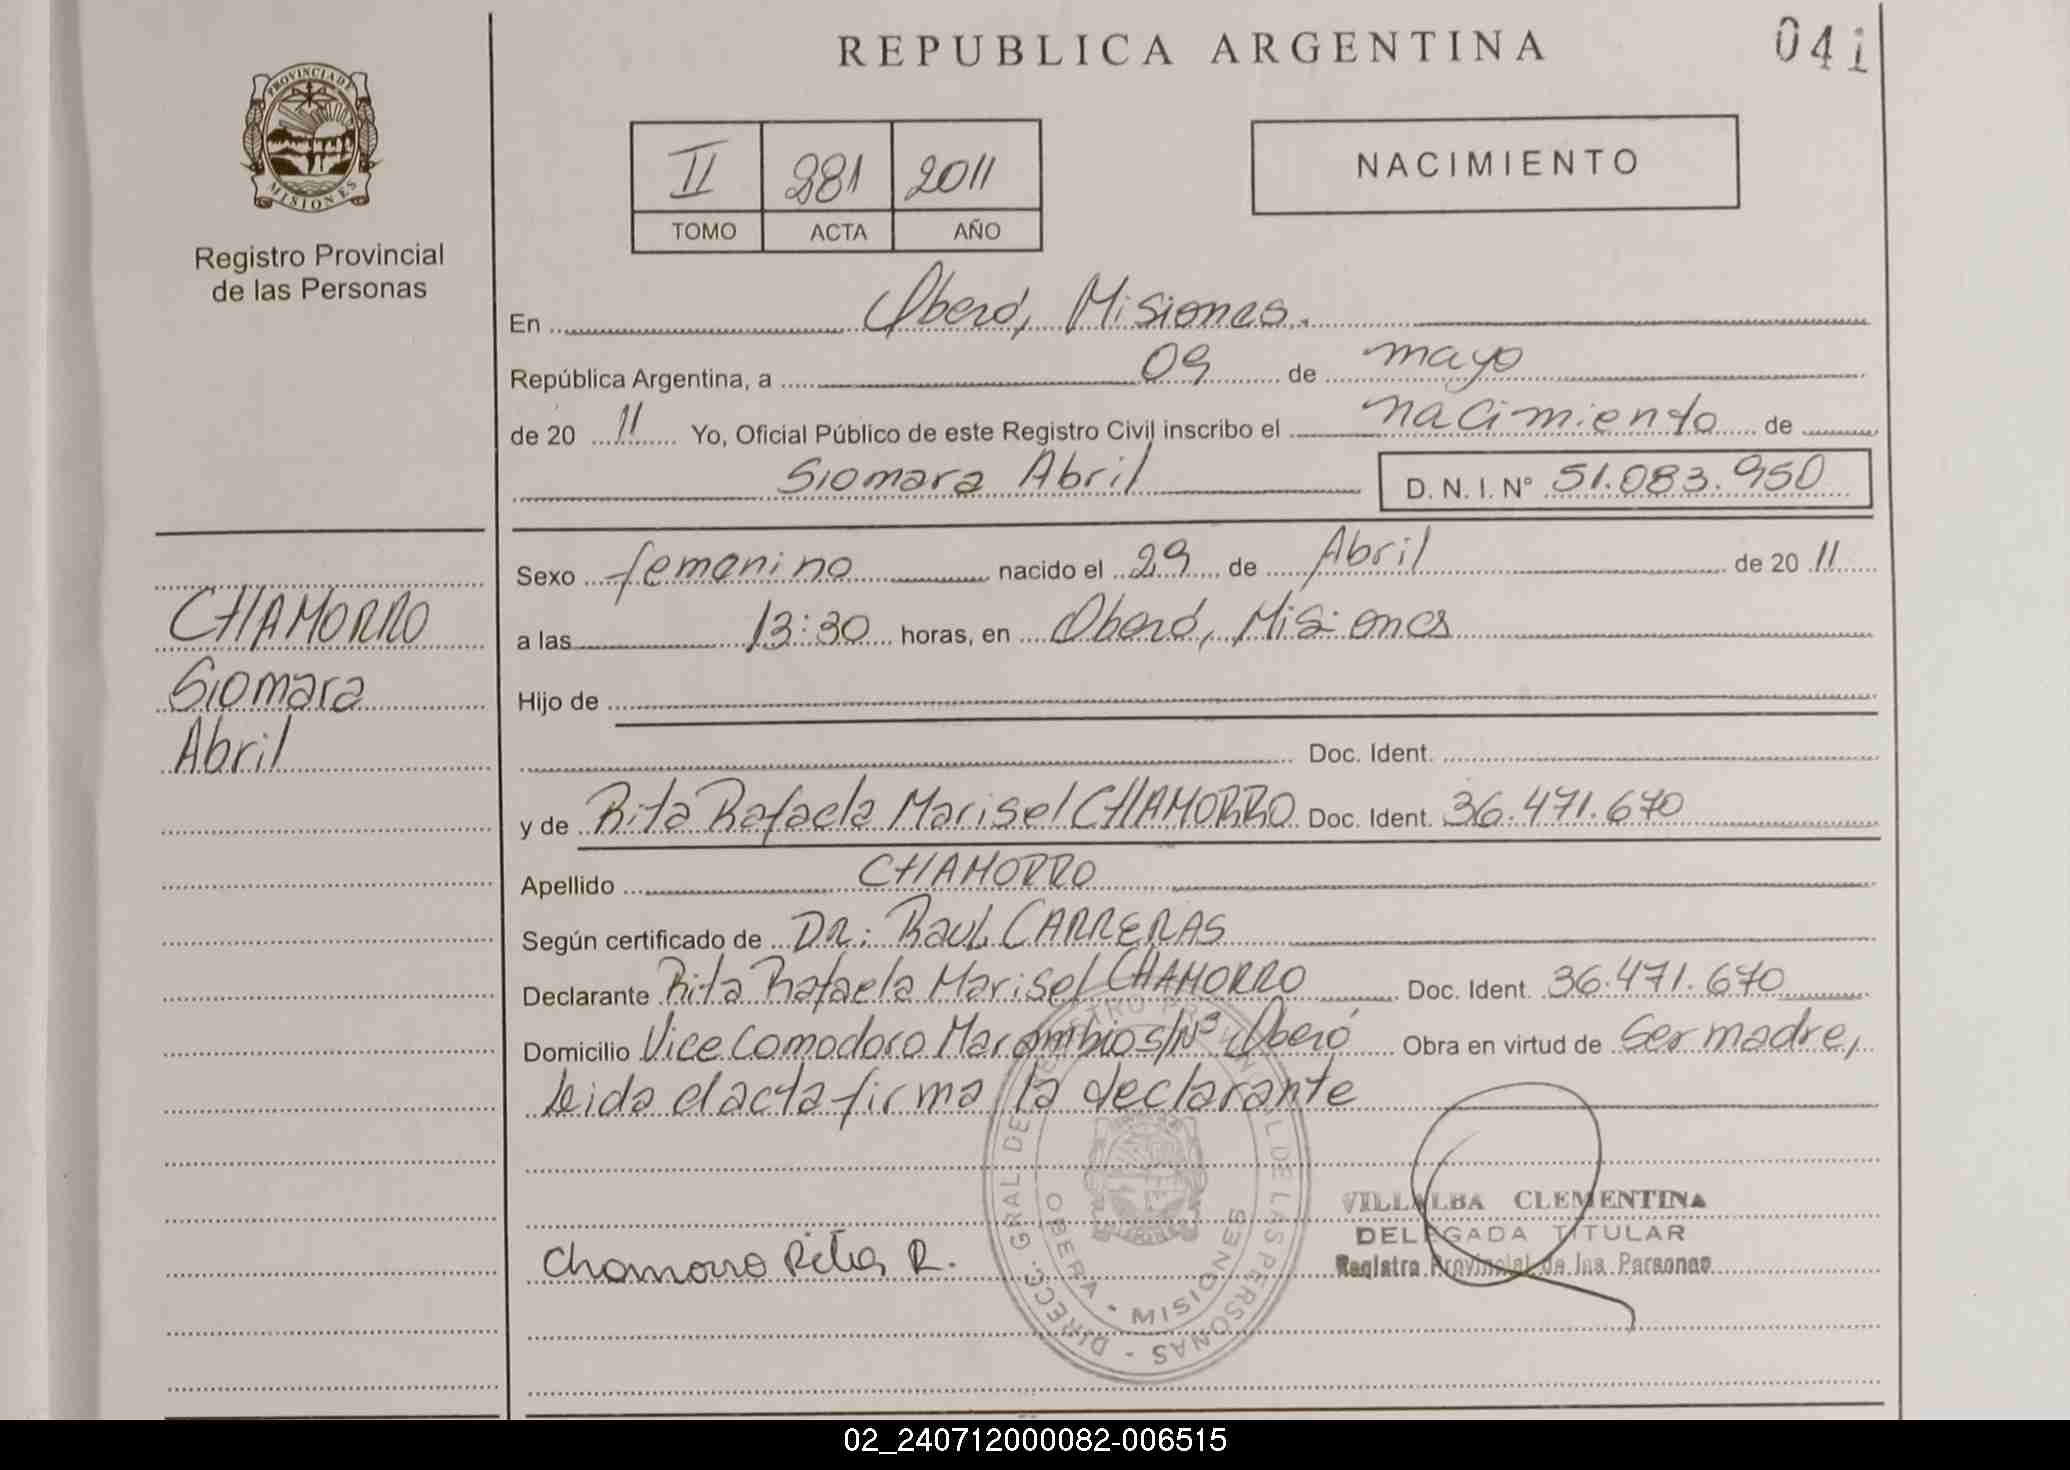 REPUBLICA ARGENTINA
041
PROVINCIA DE
MISIONES
Registro Provincial
de las Personas
II 281 2011
TOMO ACTA AÑO
NACIMIENTO
En Oberá, Misiones.
República Argentina, a 09 de mayo
de 20 11 Yo, Oficial Público de este Registro Civil inscribo el nacimiento de
Siomara Abril D. N. I. N° 51.083.950
Sexo femenino nacido el 29 de Abril de 20 11
a las 13:30 horas, en Oberá, Misiones
Hijo de
Doc. Ident.
y de Rita Rafaela Marisel CHAMORRO Doc. Ident. 36.471.670
Apellido CHAMORRO
Según certificado de DR: RAUL CARRERAS
Declarante Rita Rafaela Marisel CHAMORRO Doc. Ident. 36.471.670
Domicilio Vice Comodoro Marambio s/Nº Oberá Obra en virtud de Ser madre,
Leida el acta firma la declarante
CHAMORRO
Siomara
Abril
Chamorro Rita R.
DIRECC. GRAL. DE REGISTRO PROVINCIAL DE LAS PERSONAS -
OBERA - MISIONES
VILLALBA CLEMENTINA
DELEGADA TITULAR
Registro Provincial de las Personas
02_240712000082-006515